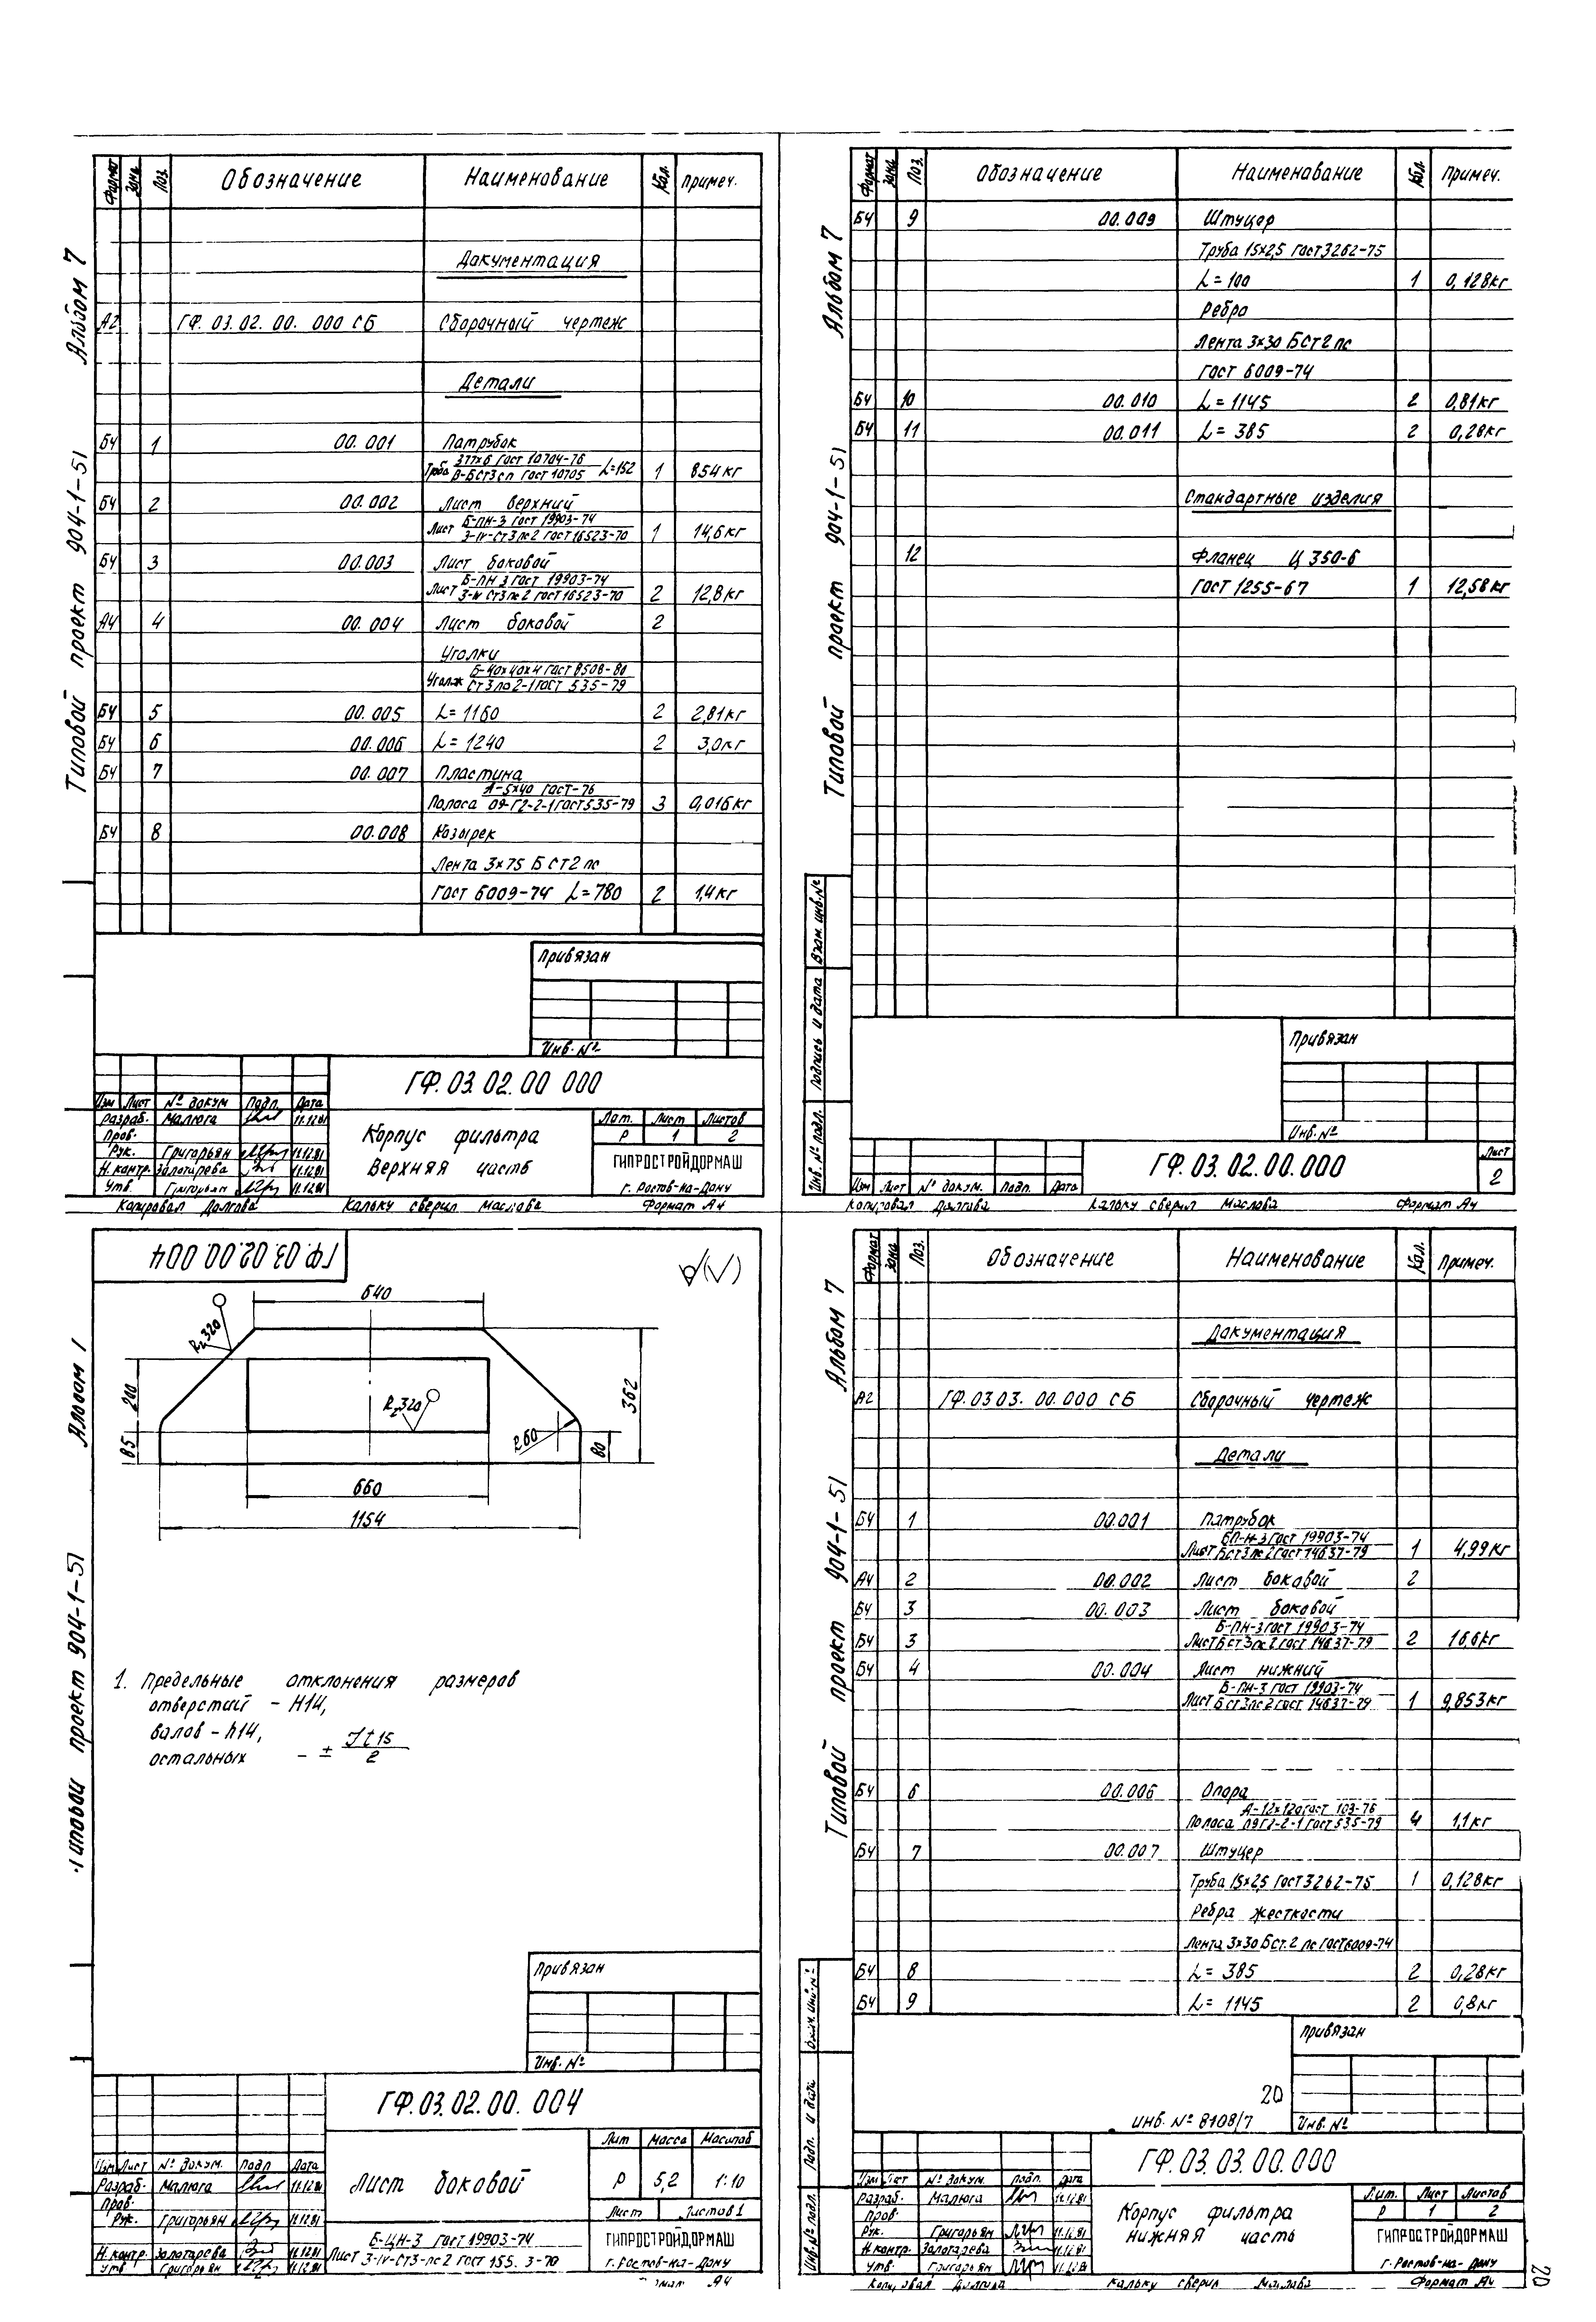 Альбом 7
Типовой проект 904-1-51
Формат Зона Поз. Обозначение Наименование Кол. Примеч.
Документация
А2 ГФ. 03.02. 00. 000 СБ Сборочный чертеж
Детали
БЧ 1 00.001 Патрубок
Труба 377х6 Гост 10704-76 L=152 1 8.54 кг
В-БСт3сп Гост 10705
БЧ 2 00.002 Лист верхний
Лист Б-ПН-3 Гост 19903-74 1 14,6 кг
3-IV-Ст3пс2 Гост 16523-70
БЧ 3 00.003 Лист боковой
Лист Б-ПН 3 Гост 19903-74 2 12,8 кг
3-IV Ст3пс2 Гост 16523-70
А4 4 00.004 Лист боковой 2
Уголки
Уголок Б-40х40х4 Гост 8508-80
Ст3пс2-1 Гост 535-79
БЧ 5 00.005 L=1160 2 2,81 кг
БЧ 6 00.006 L=1240 2 3,0 кг
БЧ 7 00.007 Пластина
Полоса А-5х40 Гост-76 3 0,016 кг
09-Г2-2-1 Гост 535-79
БЧ 8 00.008 Козырек
Лента 3х75 Б СТ2 пс
Гост 6009-74 L=780 2 1,4 кг
Привязан
Инв. №
ГФ.03.02.00 000
Изм Лист № докум Подп. Дата
Разраб. Малюга 11.12.81
Пров.
Рук. Григорьян 11.12.81
Н.контр. Золотарева 11.12.81
Утв. Григорьян 11.12.81
Корпус фильтра
Верхняя часть
Лит. Лист Листов
Р 1 2
ГИПРОСТРОЙДОРМАШ
г. Ростов-на-Дону
Копировал Долгова Кальку сверил Маслова Формат А4
Альбом 7
Типовой проект 904-1-51
Формат Зона Поз. Обозначение Наименование Кол. Примеч.
БЧ 9 00.009 Штуцер
Труба 15х2,5 Гост 3262-75
L=100 1 0,128 кг
Ребро
Лента 3х30 БСт2 пс
Гост 6009-74
БЧ 10 00.010 L=1145 2 0,81 кг
БЧ 11 00.011 L=385 2 0,28 кг
Стандартные изделия
12 Фланец Ц 350-6
Гост 1255-67 1 12,58 кг
Инв. № подл. Подпись и дата Взам. инв.№
Привязан
Инв. №
Изм Лист № докум. Подп. Дата
ГФ.03.02.00.000
Лист
2
Копировал Долгова Кальку сверил Маслова Формат А4
Альбом 1
Типовой проект 904-1-51
ГФ.03.02.00 004
640
Rz320
200
85
Rz320
R60
80
362
660
1154
1. Предельные отклонения размеров
отверстий - H14,
валов - h14,
остальных - ± It 15/2
Привязан
Инв. №
ГФ.03.02.00. 004
Изм Лист № докум. Подп Дата
Разраб. Малюга 11.12.81
Пров.
Рук. Григорьян 11.12.81
Н.контр. Золотарева 11.12.81
Утв Григорьян 11.12.81
Лист боковой
Лит Масса Масштаб
Р 5,2 1:10
Лист Листов 1
Лист Б-ЦН-3 Гост 19903-74
3-IV-СТ3-пс2 Гост 155. 3-70
ГИПРОСТРОЙДОРМАШ
г. Ростов-на-Дону
А4
Альбом 7
Типовой проект 904-1-51
Формат Зона Поз. Обозначение Наименование Кол. Примеч.
Документация
А2 ГФ.03 03. 00.000 СБ Сборочный чертеж
Детали
БЧ 1 00.001 Патрубок
Лист БП-Н-3 Гост 19903-74 1 4,99 кг
БСт3пс2 Гост 14637-79
А4 2 00.002 Лист боковой 2
БЧ 3 00.003 Лист боковой
БЧ 3 Лист Б-ПН-3 Гост 19903-74 2 16,6 кг
БСт3пс2 Гост 14637-79
БЧ 4 00.004 Лист нижний
Лист Б-ПН-3 Гост 19903-74 1 9,853 кг
БСт3пс2 Гост 14637-79
БЧ 6 00.006 Опора
Полоса А-12х120 Гост 103-76 4 1,1 кг
09Г2-2-1 Гост 535-79
БЧ 7 00.007 Штуцер
Труба 15х2,5 Гост 3262-75 1 0,128 кг
Ребра жесткости
Лента 3х30 БСт.2 пс Гост 6009-74
БЧ 8 L=385 2 0,28 кг
БЧ 9 L=1145 2 0,8 кг
Инв. № подл. Подп. и дата
Привязан
20
инв. № 8108/7
Инв. №
ГФ.03.03.00.000
Изм Лист № докум. Подп. Дата
Разраб. Малюга 11.12.81
Пров.
Рук. Григорьян 11.12.81
Н.контр. Золотарева 11.12.81
Утв. Григорьян 11.12.81
Корпус фильтра
нижняя часть
Лит. Лист Листов
Р 1 2
ГИПРОСТРОЙДОРМАШ
г. Ростов-на-Дону
Копировал Долгова Кальку сверил Маслова Формат А4
20